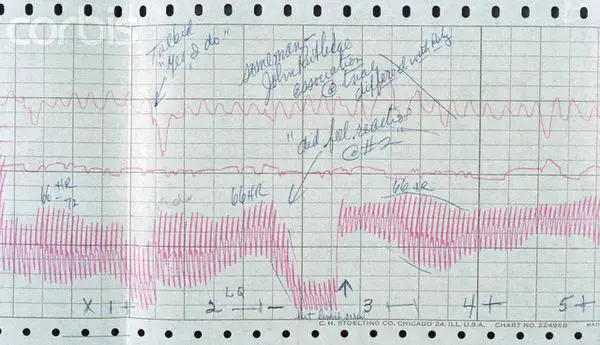 corbis
Talked
"Yes, I do"
someman
John Rutledge
association
@ trial
differed with
"did feel reaction
@ #2"
66 HR
72
66 HR
66 HR
X 1+
2 LQ -
3
4 +
5 +
C. H. STOELTING CO., CHICAGO 24, ILL. U.S.A. CHART NO. 22495B MAD